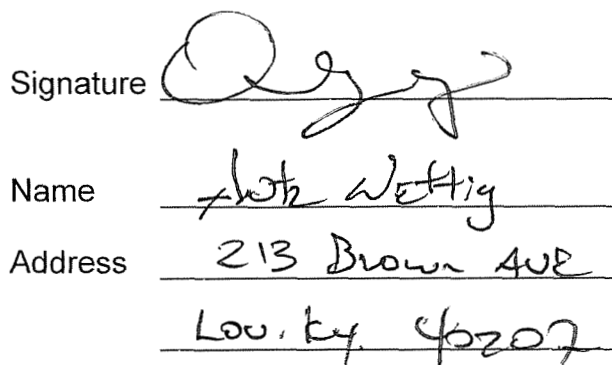 Signature
Name Wettig
Address 213 Brown AVE
Lou. Ky. 40207